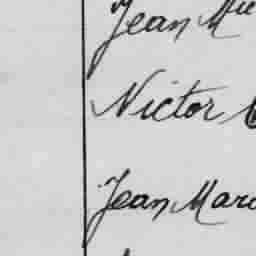 Jean Mi
Victor
Jean Marc